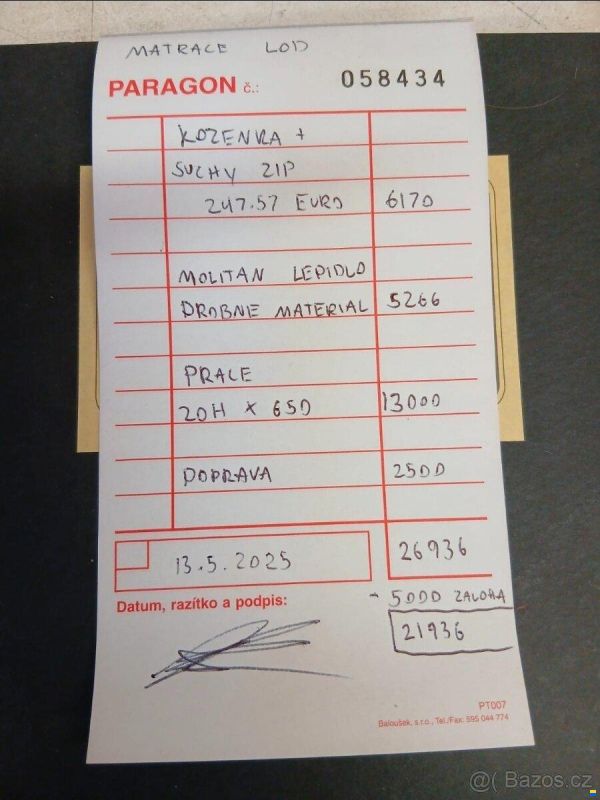 MATRACE LOD
PARAGON č.: 058434
KOZENKA +
SUCHY ZIP
247.57 EURO 6170
MOLITAN LEPIDLO
DROBNE MATERIAL 5266
PRACE
20H × 650 13000
DOPRAVA 2500
13.5.2025 26936
Datum, razítko a podpis:
- 5000 ZALOHA
21936
PT007
Baloušek, s.r.o., Tel./Fax: 595 044 774
@( Bazos.cz